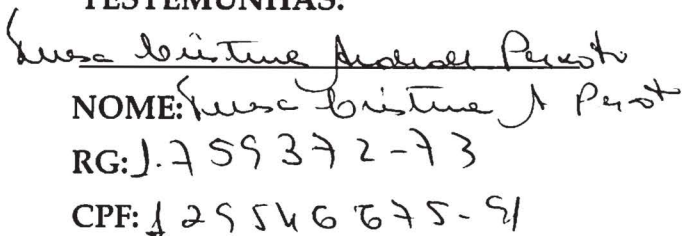 TESTEMUNHAS:
Cristina Andrade Peixoto
NOME: Cristina A Peixoto
RG: 1.759372-73
CPF: 129546675-91